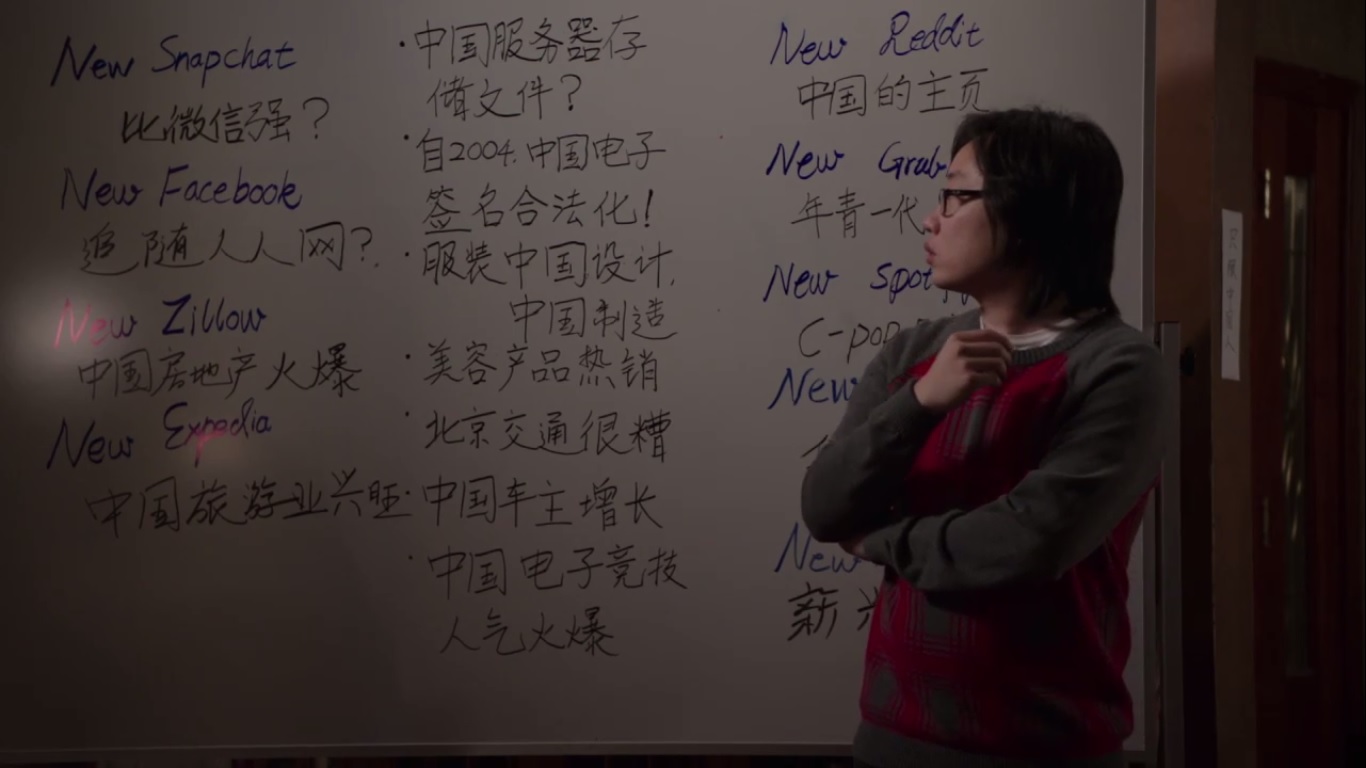 New Snapchat
比微信强？
New Facebook
追随人人网？
New Zillow
中国房地产火爆
New Expedia
中国旅游业兴旺
·中国服务器存
储文件？
·自2004.中国电子
签名合法化！
·服装中国设计,
中国制造
·美容产品热销
·北京交通很糟
·中国车主增长
·中国电子竞技
人气火爆
New Reddit
中国的主页
New Grub
年青一代
New Spot
C-pop
New
New
新兴